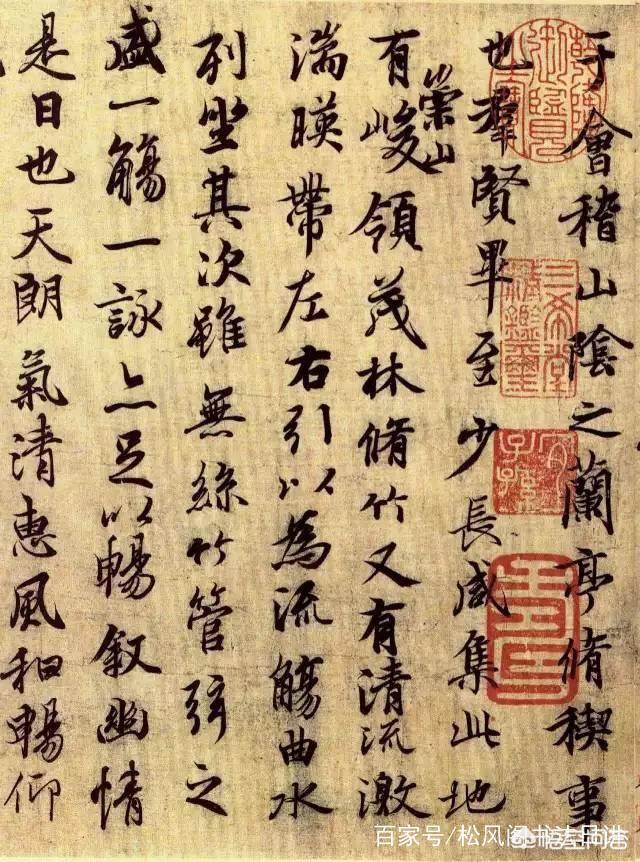 于會稽山陰之蘭亭脩稧事
也羣賢畢至少長咸集此地
有崇山峻領茂林脩竹又有清流激
湍暎帶左右引以為流觴曲水
列坐其次雖無絲竹管弦之
盛一觴一詠亦足以暢叙幽情
是日也天朗氣清惠風和暢仰
三希堂精鑑璽
宜子孫
百家号/松风阁书法日讲